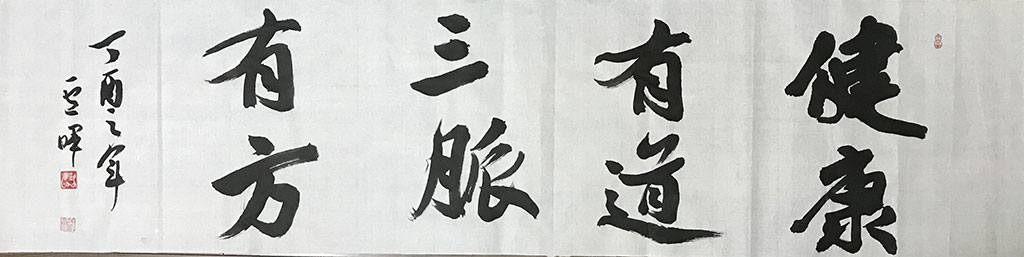 健康
有道
三脈
有方
丁酉之年